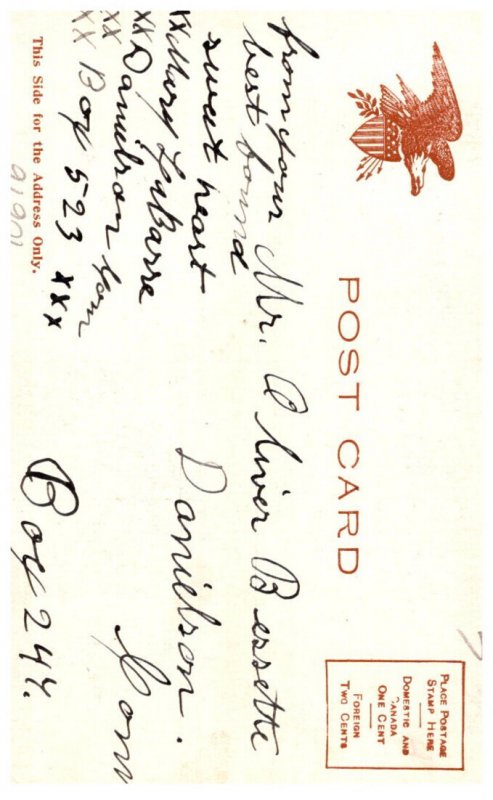 POST CARD
PLACE POSTAGE
STAMP HERE
DOMESTIC AND
CANADA
ONE CENT
FOREIGN
TWO CENTS
from your
best bound
sweet heart
xx Mary LaBarre
xx Danielson Conn
xx Box 523 xxx
Mr. Oliver Bessette
Danielson.
Conn
Box 244.
This Side for the Address Only.